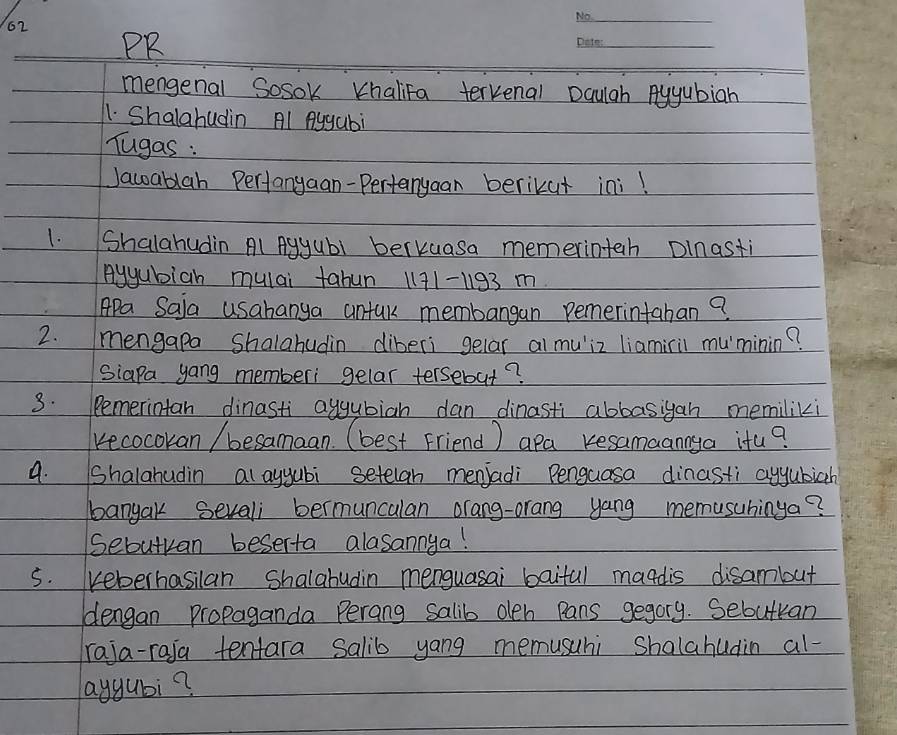 /62
No.
PR
Date:
mengenal Sosok Khalifa terkenal Daulah Ayyubiah
1. Shalahudin Al Ayyubi
Tugas :
Jawablah Pertanyaan-Pertanyaan berikut ini !
1. Shalahudin Al Ayyubi berkuasa memerintah Dinasti
Ayyubiah mulai tahun 1171-1193 m.
Apa Saja usahanya untuk membangun pemerintahan ?
2. mengapa Shalahudin diberi gelar al mu'iz liamiril mu'minin ?
Siapa yang memberi gelar tersebut ?
3. Pemerintah dinasti ayyubiah dan dinasti abbasiyah memiliki
kecocokan / besamaan. (best Friend) apa kesamaannya itu ?
4. Shalahudin al ayyubi setelah menjadi Penguasa dinasti ayyubiah
banyak sekali bermunculan orang-orang yang memusuhinya ?
Sebutkan beserta alasannya !
5. keberhasilan Shalahudin menguasai baitul maqdis disambut
dengan Propaganda Perang salib oleh Pans gegory. Sebutkan
raja-raja tentara Salib yang memusuhi Shalahudin al-
ayyubi ?